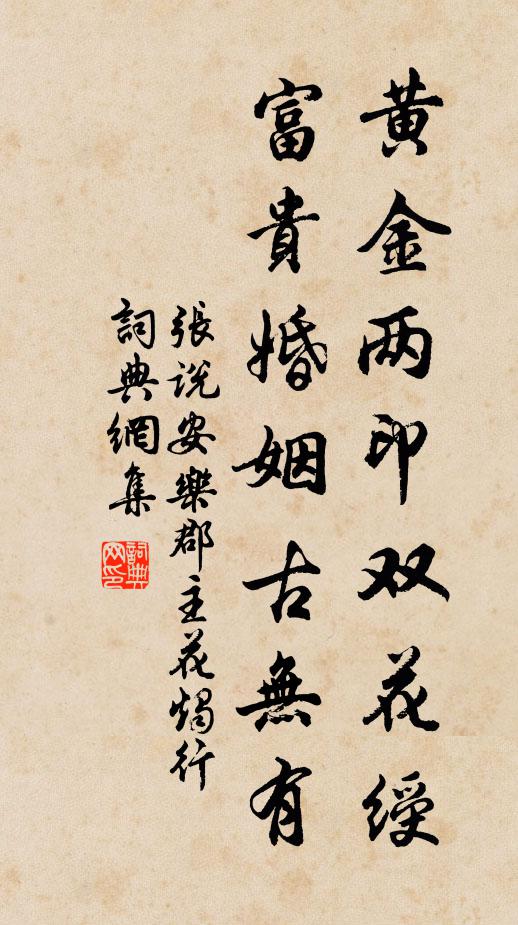 黄金两印双花綬
富貴婚姻古無有
張説安樂郡主花燭行
詞典網集
詞典网印